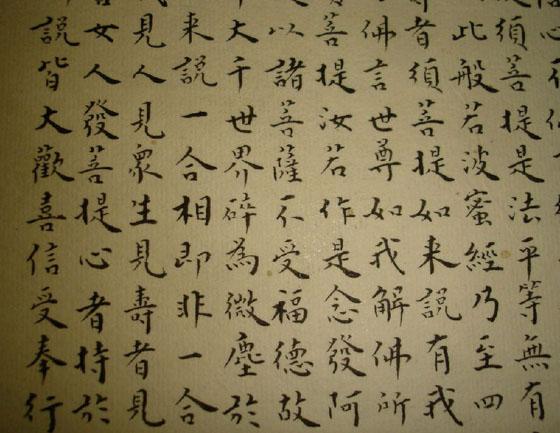 須菩提是法平等無有
此般若波蜜經乃至四
者須菩提如来說有我
佛言世尊如我解佛所
菩提汝若作是念發阿
以諸菩薩不受福德故
大千世界碎為微塵於
来說一合相即非一合
見人見衆生見壽者見
女人發菩提心者持於
說皆大歡喜信受奉行